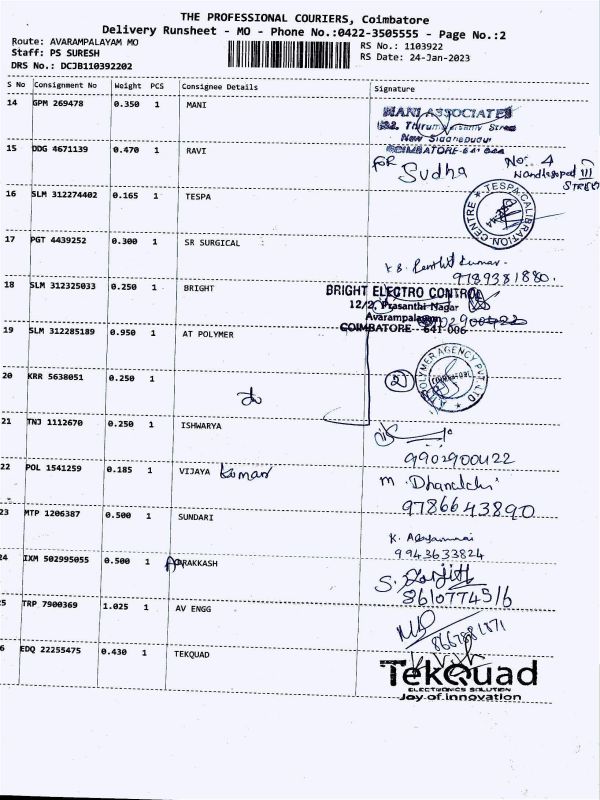 THE PROFESSIONAL COURIERS, Coimbatore
Delivery Runsheet - MO - Phone No.:0422-3505555 - Page No.:2
Route: AVARAMPALAYAM MO
Staff: PS SURESH
DRS No.: DCJB110392202
RS No.: 1103922
RS Date: 24-Jan-2023
S No Consignment No Weight PCS Consignee Details Signature
14 GPM 269478 0.350 1 MANI
MANI ASSOCIATES
New Siddhapudur
COIMBATORE-641 044
15 DDG 4671139 0.470 1 RAVI
FOR Sudha
No. 4
STREET
16 SLM 312274402 0.165 1 TESPA
TESPA CALIBRATION CENTRE
17 PGT 4439252 0.300 1 SR SURGICAL
9789381880.
18 SLM 312325033 0.250 1 BRIGHT
BRIGHT ELECTRO CONTROL
12/2, Prasanthi Nagar
Avarampalayam
COIMBATORE - 641 006
19 SLM 312285189 0.950 1 AT POLYMER
AT POLYMER AGENCY PVT LTD
COIMBATORE
20 KRR 5638051 0.250 1
2
21 TNJ 1112670 0.250 1 ISHWARYA
9902900422
22 POL 1541259 0.185 1 VIJAYA Kumar
M. Dhanalchi
9786643890
23 MTP 1206387 0.500 1 SUNDARI
9943633824
24 IXM 502995055 0.500 1 PRAKKASH
8610774516
5 TRP 7900369 1.025 1 AV ENGG
8667881871
6 EDQ 22255475 0.430 1 TEKQUAD
TekQuad
ELECTRONICS SOLUTION
Joy of innovation